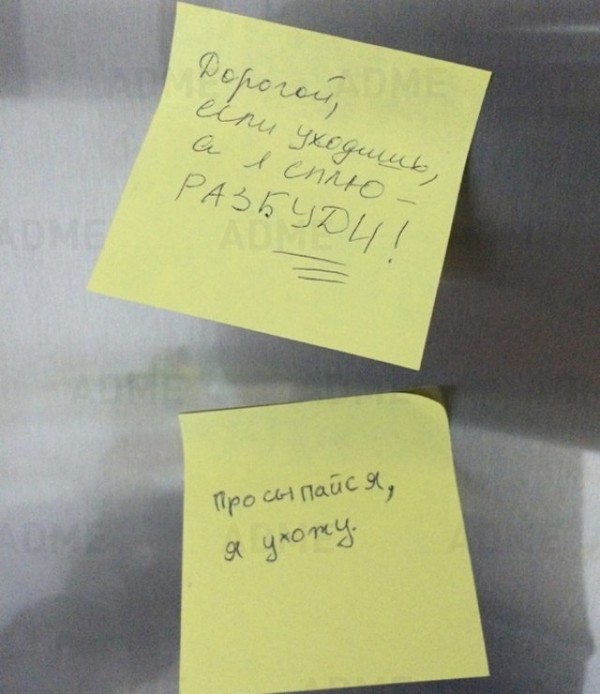 Дорогой,
если уходишь,
а я сплю –
РАЗБУДИ!
Просыпайся,
я ухожу.
ADME
ADME
ADME
ADME
ADME
ADME
ADME
ADME